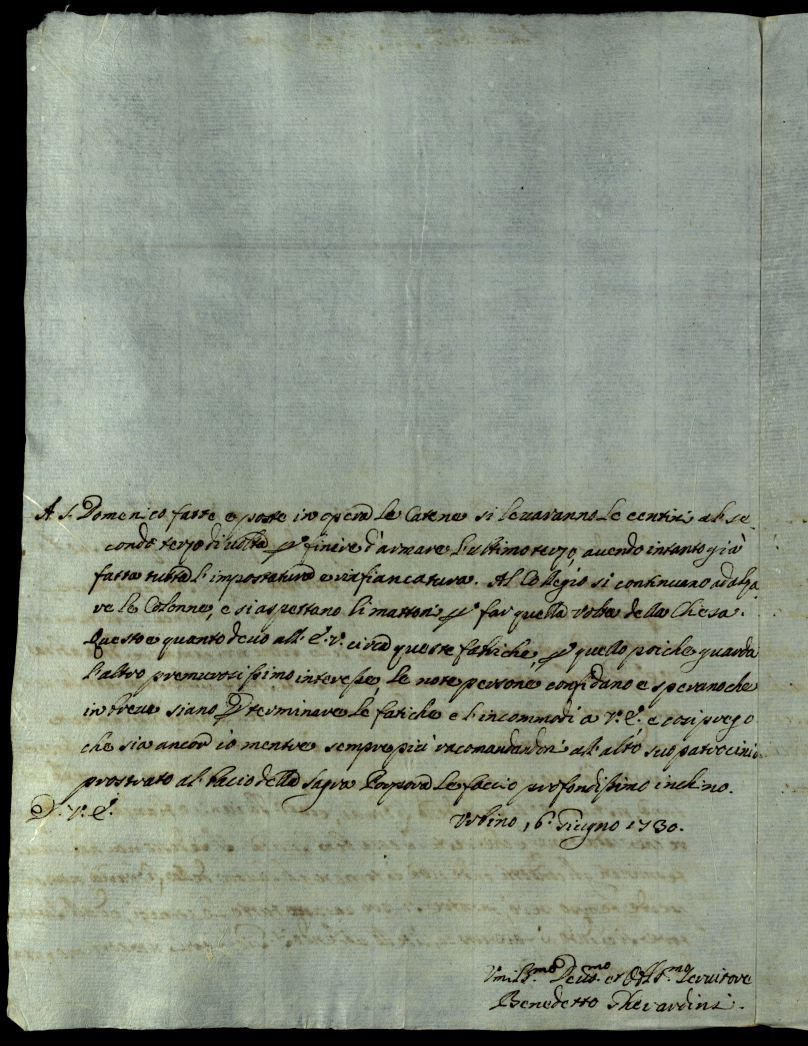 A S. Domenico fatte e poste in opera le Catene si levaranno le centini al se
condo terzo di volta per finire d'armare l'ultimo terzo, avendo intanto già
fatta tutta l'impostatura e rinfiancatura. Al Collegio si continuano ad alza
re le Colonne, e si aspettano li mattoni per far quella volta della Chesa.
Questo e quanto devo all'E. V. circa queste fabriche, per quello poiche guarda
l'altro premurosissimo interesse, le note persone confidano e sperano che
in breve siano per terminare le fatiche e l'incommodi a V. E. e così prego
che sia ancor io mentre sempre più racomandandomi all'alto suo patrocinio
prostrato al bacio della Sagra Porpora le faccio profondissimo inchino.
D. V. E. Urbino, 6 Giugno 1730.
Umil.mo Devot.mo et Obl.mo Servitore
Benedetto Gherardini.